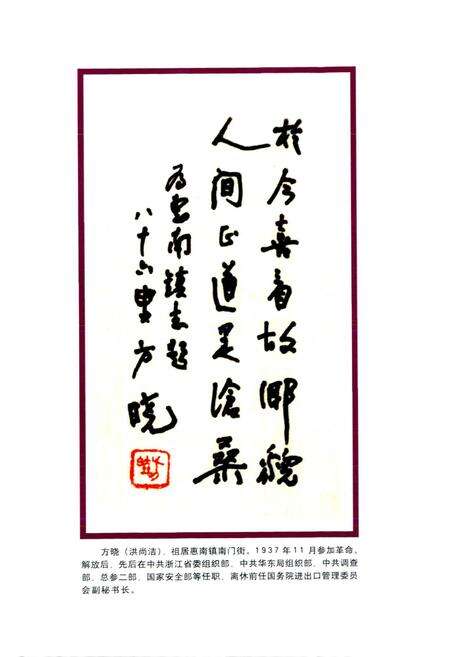 於今喜看故鄉貌
人间正道是滄桑
为惠南镇志题
八十六叟方晓
方晓（洪尚洁）、祖居惠南镇南门街，1937年11月参加革命，
解放后，先后在中共浙江省委组织部、中共华东局组织部、中共调查
部、总参二部、国家安全部等任职，离休前任国务院进出口管理委员
会副秘书长。